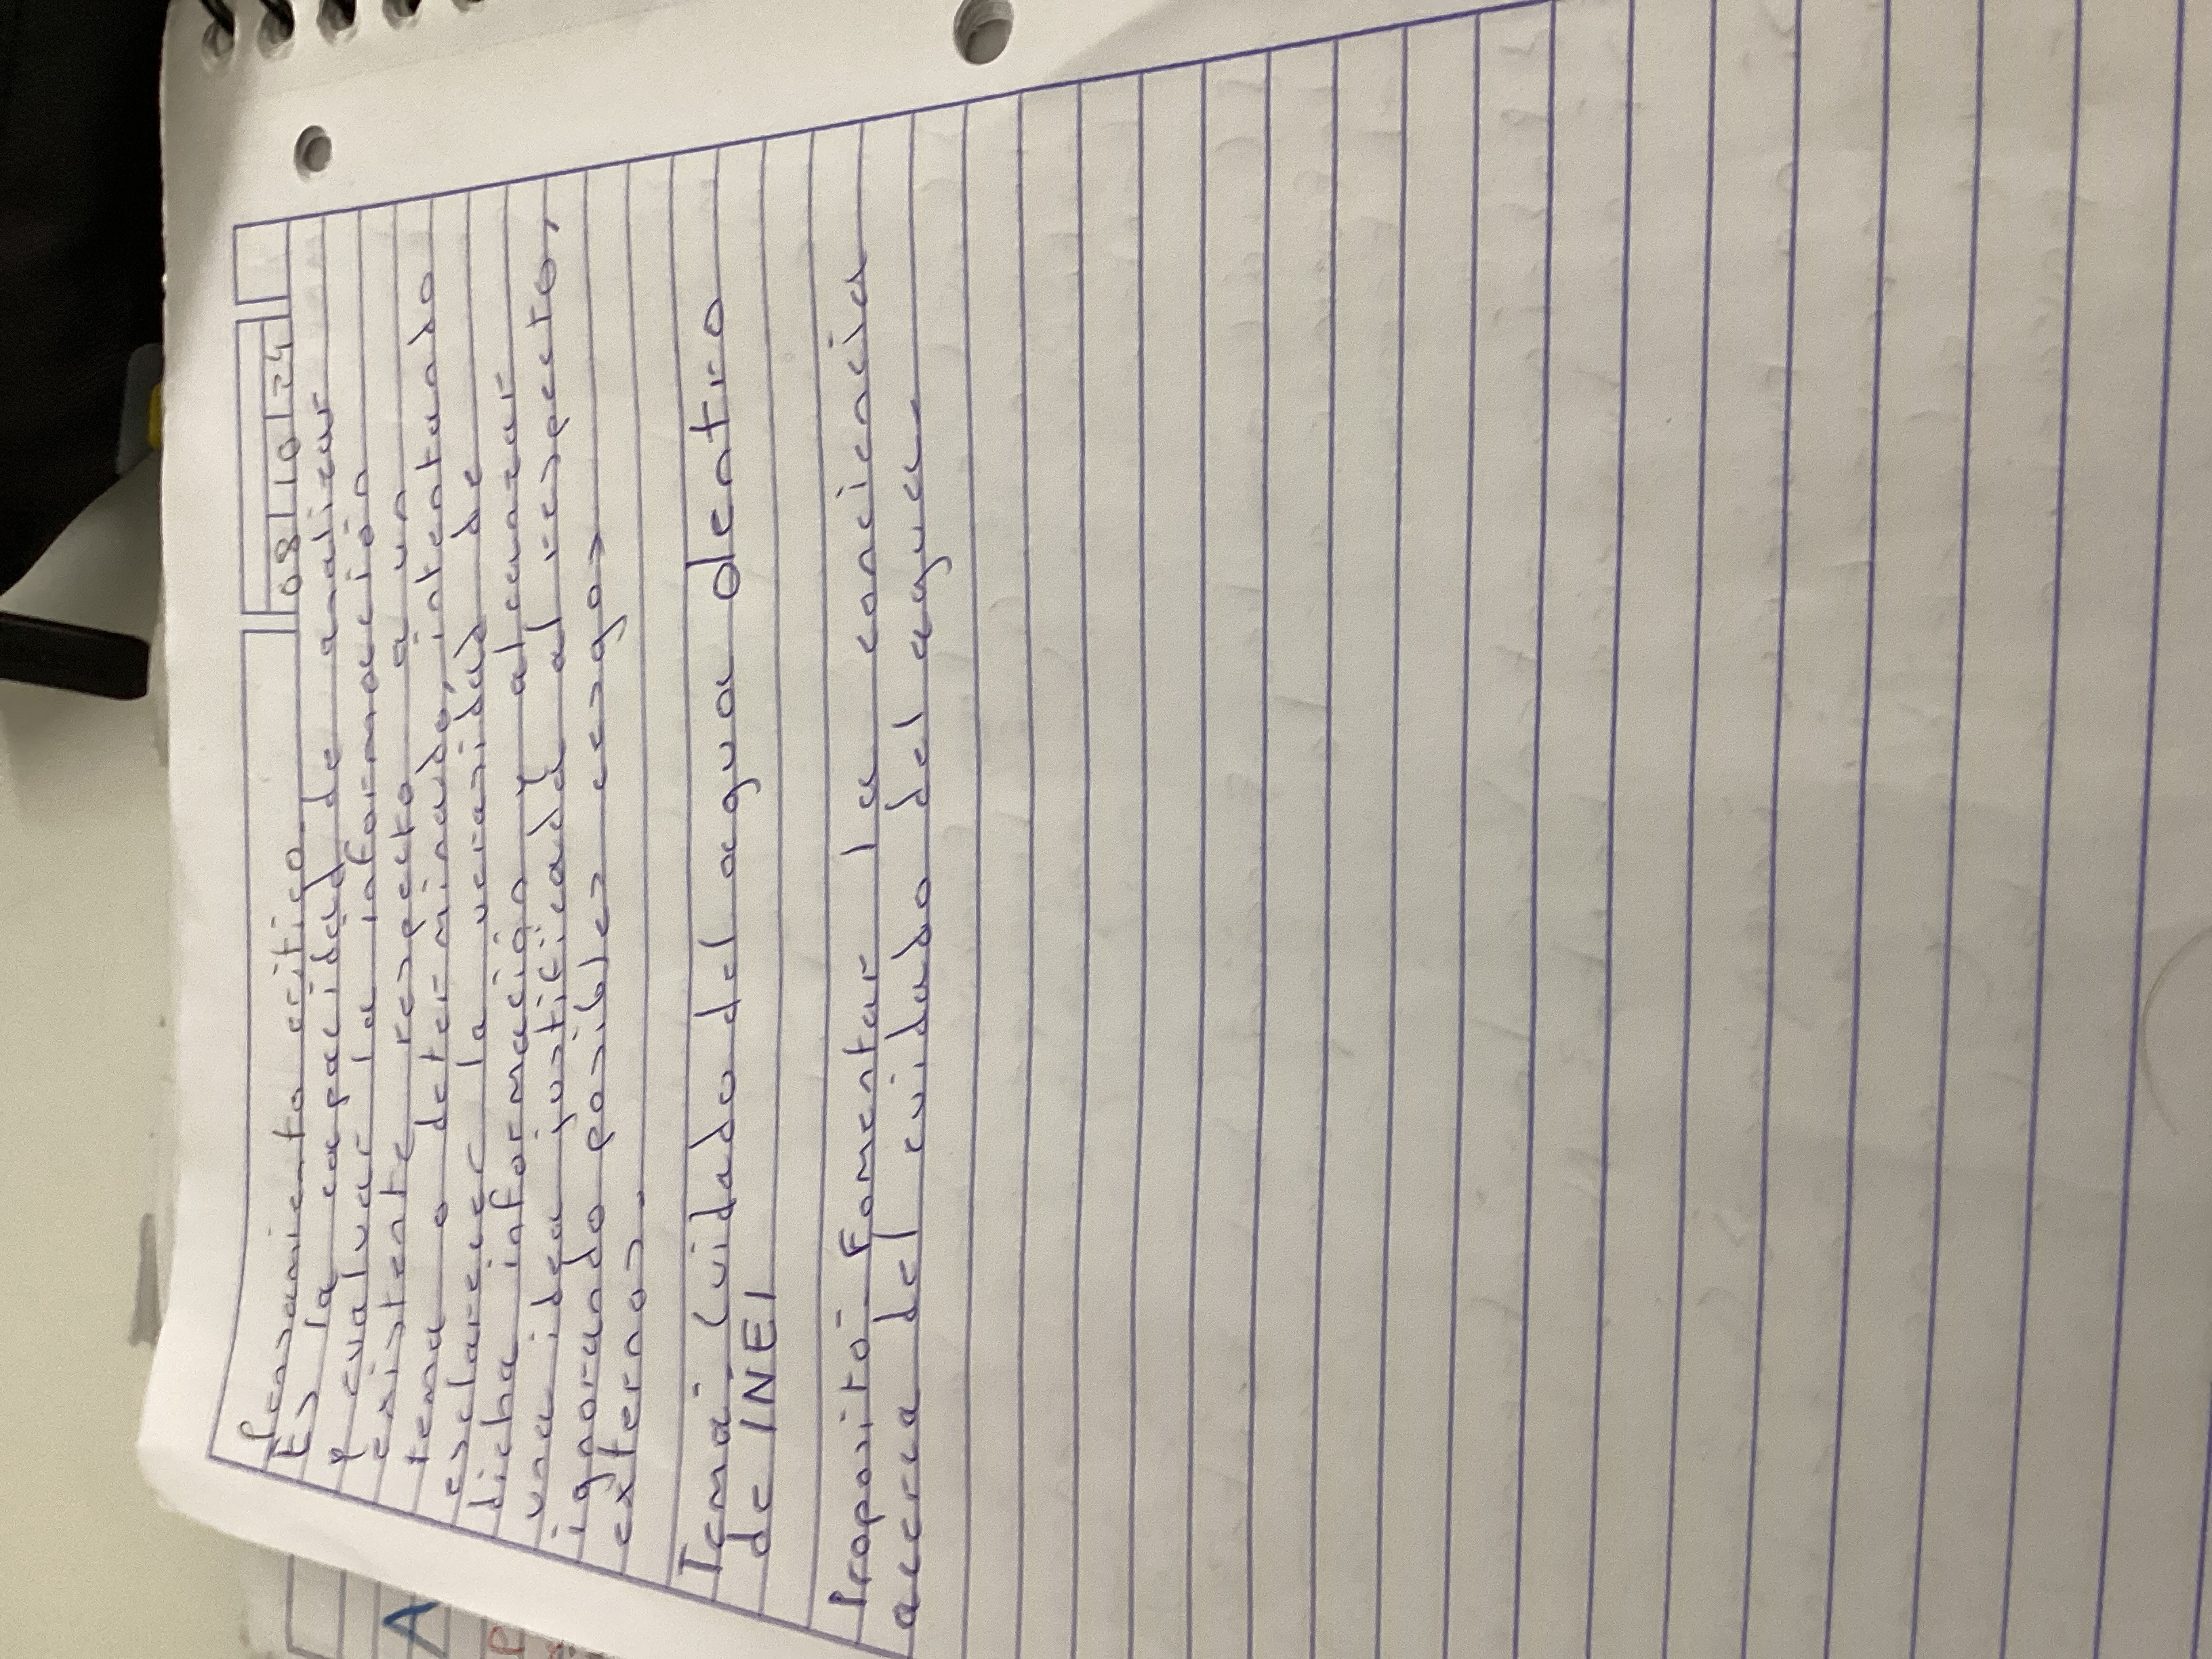 08 10 24
Pensamiento critico.
Es la capacidad de analizar
y evaluar la información
existente respecto a un
tema o determinado, intentando
esclarecer la veracidad de
dicha información y alcanzar
una idea justificada al respecto,
ignorando posibles sesgos
externos.
Tema: Cuidado del agua dentro
de INEI
Proposito: Fomentar la conciencia
acerca del cuidado del agua
A